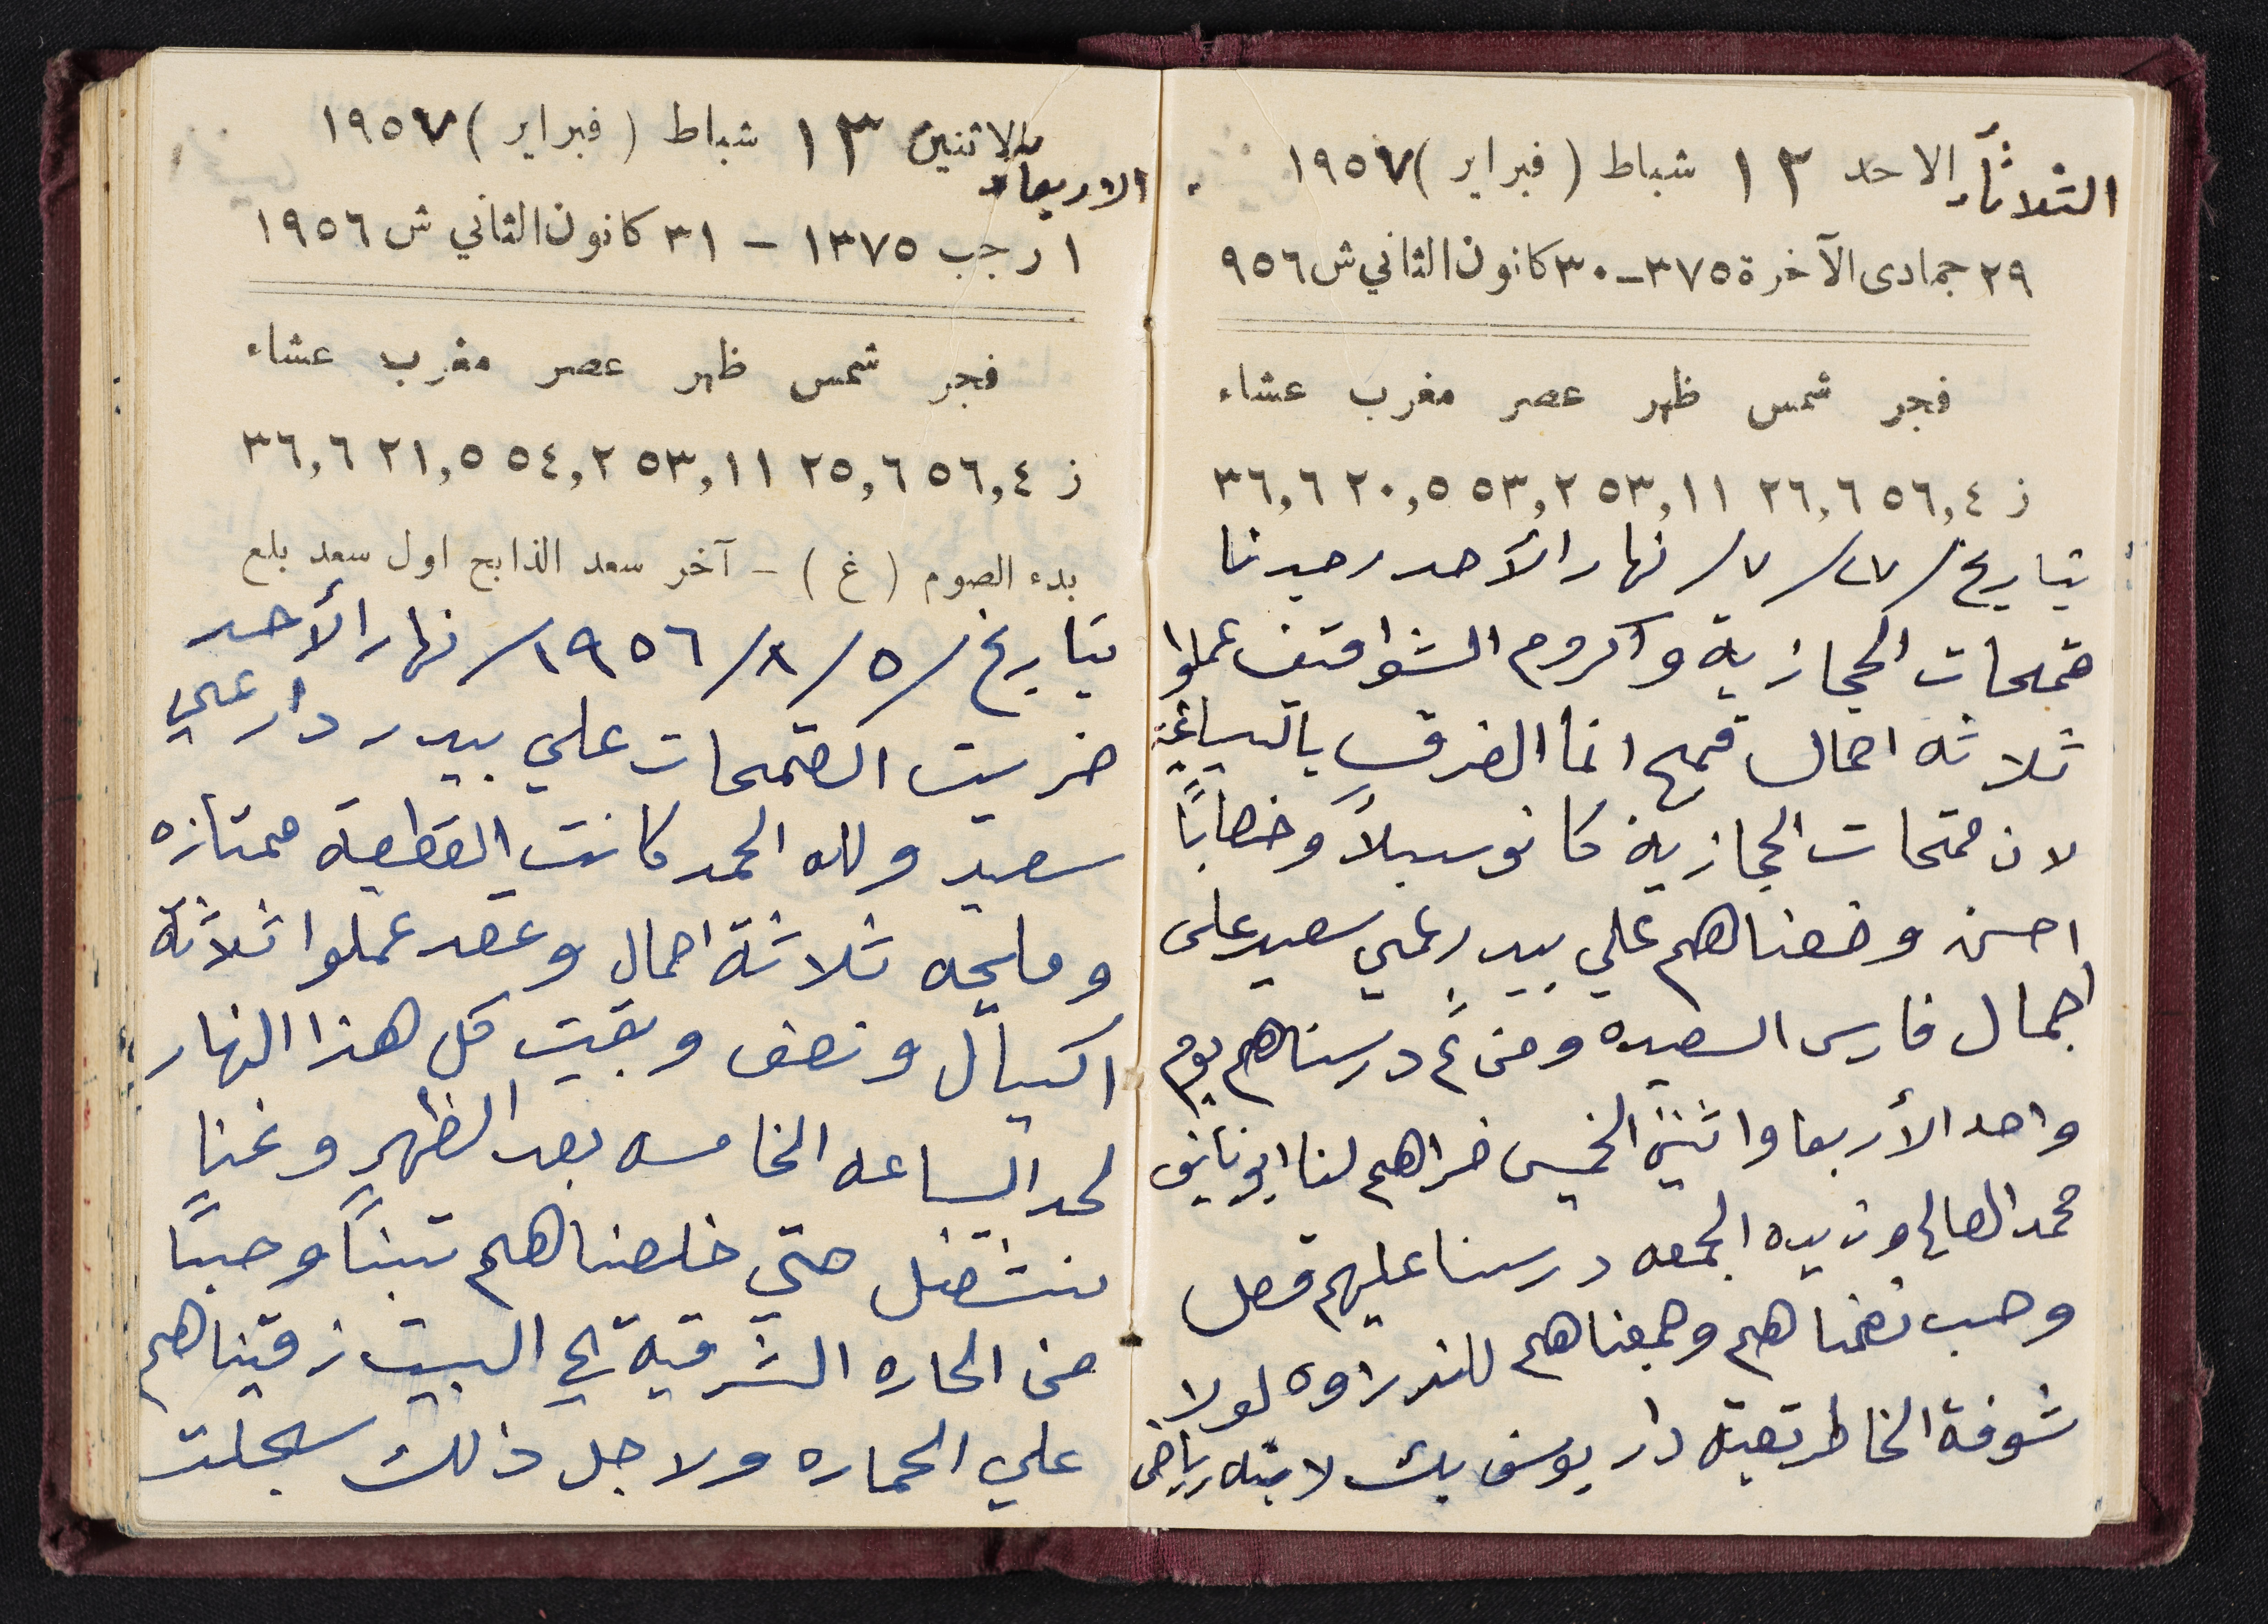 الثلاثاء الاحد ١٢ شباط (فبراير) ١٩٥٧
٢٩ جمادى الآخرة ٣٧٥ـ٣٠ كانون الثاني ش ٩٥٦
فجر شمس ظهر عصر مغرب عشاء
ز ٥٦,٤ ٢٦,٦ ٥٣,١١ ٥٣,٢ ٢٠,٥ ٣٦,٦
بتاريخ /٢٧ /٧/ نهار الأحد رجدنا
قمحات الحجازية وكروم الشواقيف عملوا
ثلاثة احمال قمح انما الفرق
لان قمحات الحجازية كانو سبلاً وخصاباً
احسن وضعناهم علي بيدر عمي سعيد على
اجمال فارس السعيده ومن ثم درسناهم يوم
واحد الأربعا واثنين الخميس ضراهم لنا ابو نايف
محمد الصالح وزيده الجمعه درسنا عليهم قصل
وحب نعمناهم وجمعناهم للندراوه لولا
شوفة الخاطر تعيته دار يوسف بك لابنه رياض
الاثنين ١٣ شباط (فبراير) ١٩٥٧
الاربعاء
١ رجب ١٣٧٥ - ٣١ كانون الثاني ش ١٩٥٦
فجر شمس ظهر عصر مغرب عشاء
ز ٥٦,٤ ٢٥,٦ ٥٣,١١ ٥٤,٢ ٢١,٥ ٣٦,٦
بدء الصوم (غ) - آخر سعد الذابح اول سعد بلع
بتاريخ /٥ /٨ /١٩٥٦/ نهار الأحد
ضريت القمحات علي بيدر دار عمي
سعيد ولله الحمد كانت القطعية ممتازه
ومليحه ثلاثة احمال وعقد عملوا ثلاثة
اكيال ونصف وبقيت كل هذا النهار
لحد الساعه الخامسه بعد الظهر ونحنا
ننشغل حتي خلصناهم تبناً وحباً
من الحاره الشرقية الي البيت زقيناهم
علي الحماره ولاجل ذلك سجلت